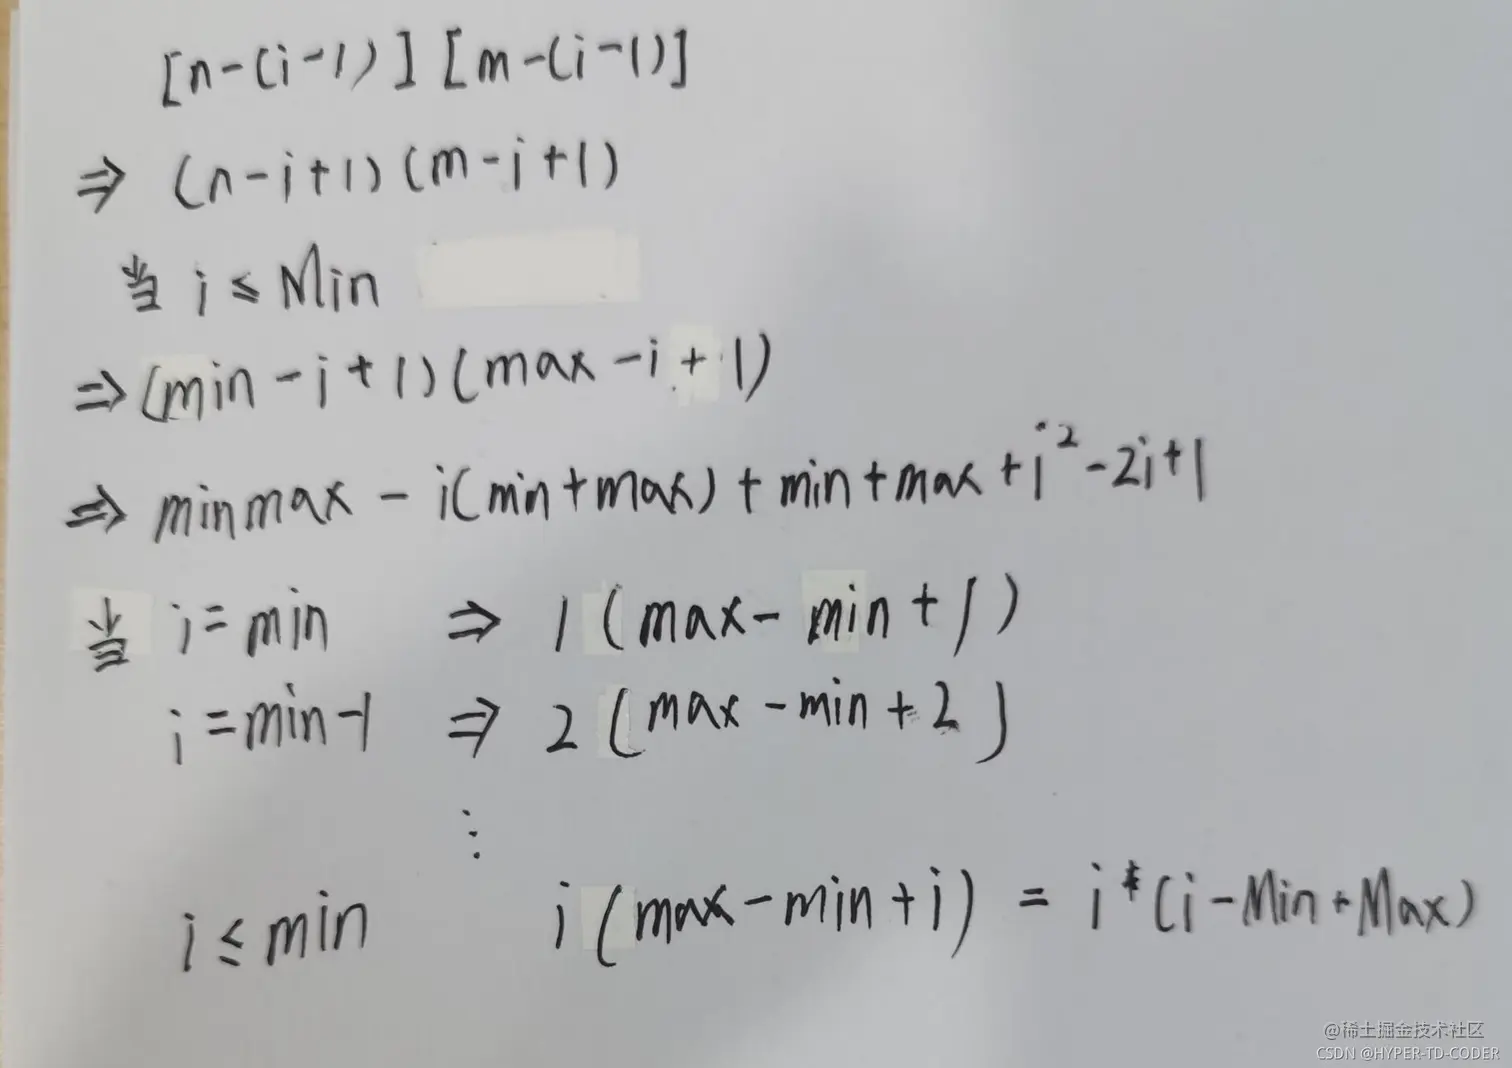 [n-(i-1)][m-(i-1)]
⇒ (n-i+1)(m-i+1)
当 i ≤ Min
⇒ (min-i+1)(max-i+1)
⇒ minmax - i(min+max) + min+max+i²-2i+1
当 i=min ⇒ 1(max-min+1)
i=min-1 ⇒ 2(max-min+2)
⋮
i≤min i(max-min+i) = i*(i-Min+Max)
@稀土掘金技术社区
CSDN @HYPER-TD-CODER